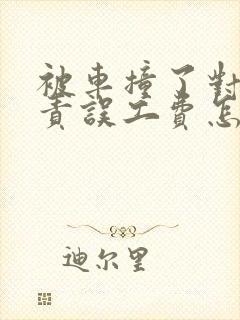 被車撞了對
責誤工費怎
迪尔里